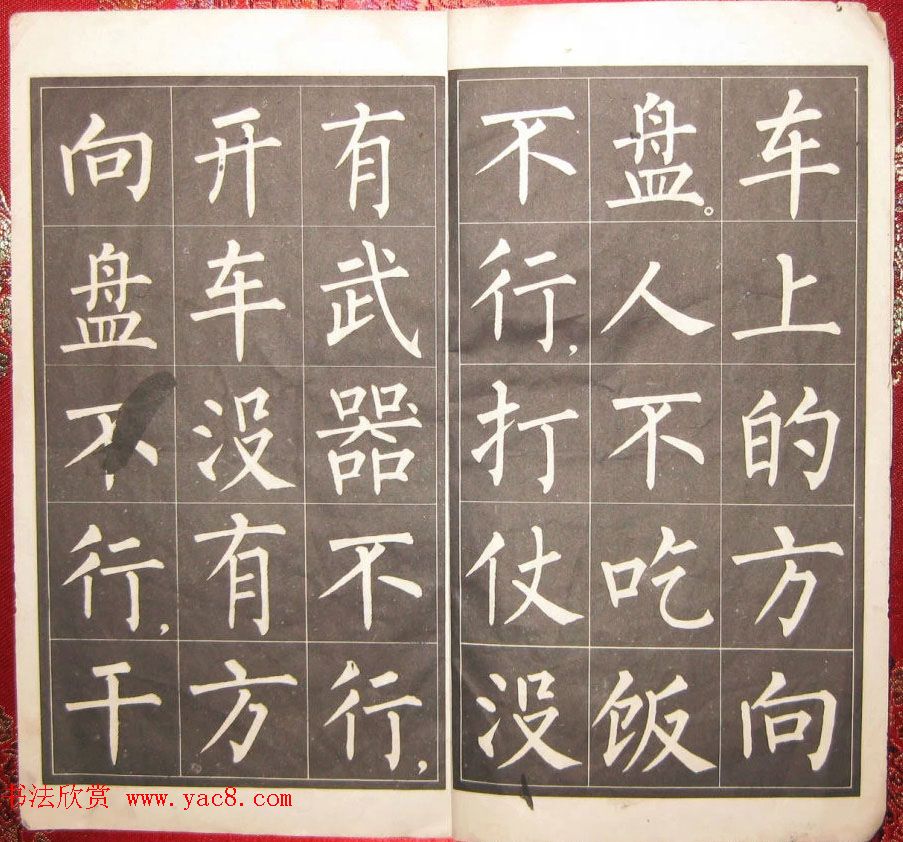 车上的方向
盘。人不吃饭
不行,打仗没
有武器不行,
开车没有方
向盘不行,干
书法欣赏 www.yac8.com